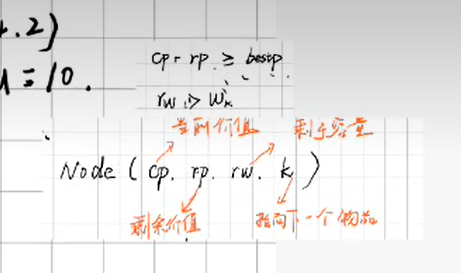 .2)
=10.
cp+rp ≥ bestp
rw ≥ Wk
当前价值 剩余容量
Node (cp. rp. rw. k)
剩余价值 指向下一个物品